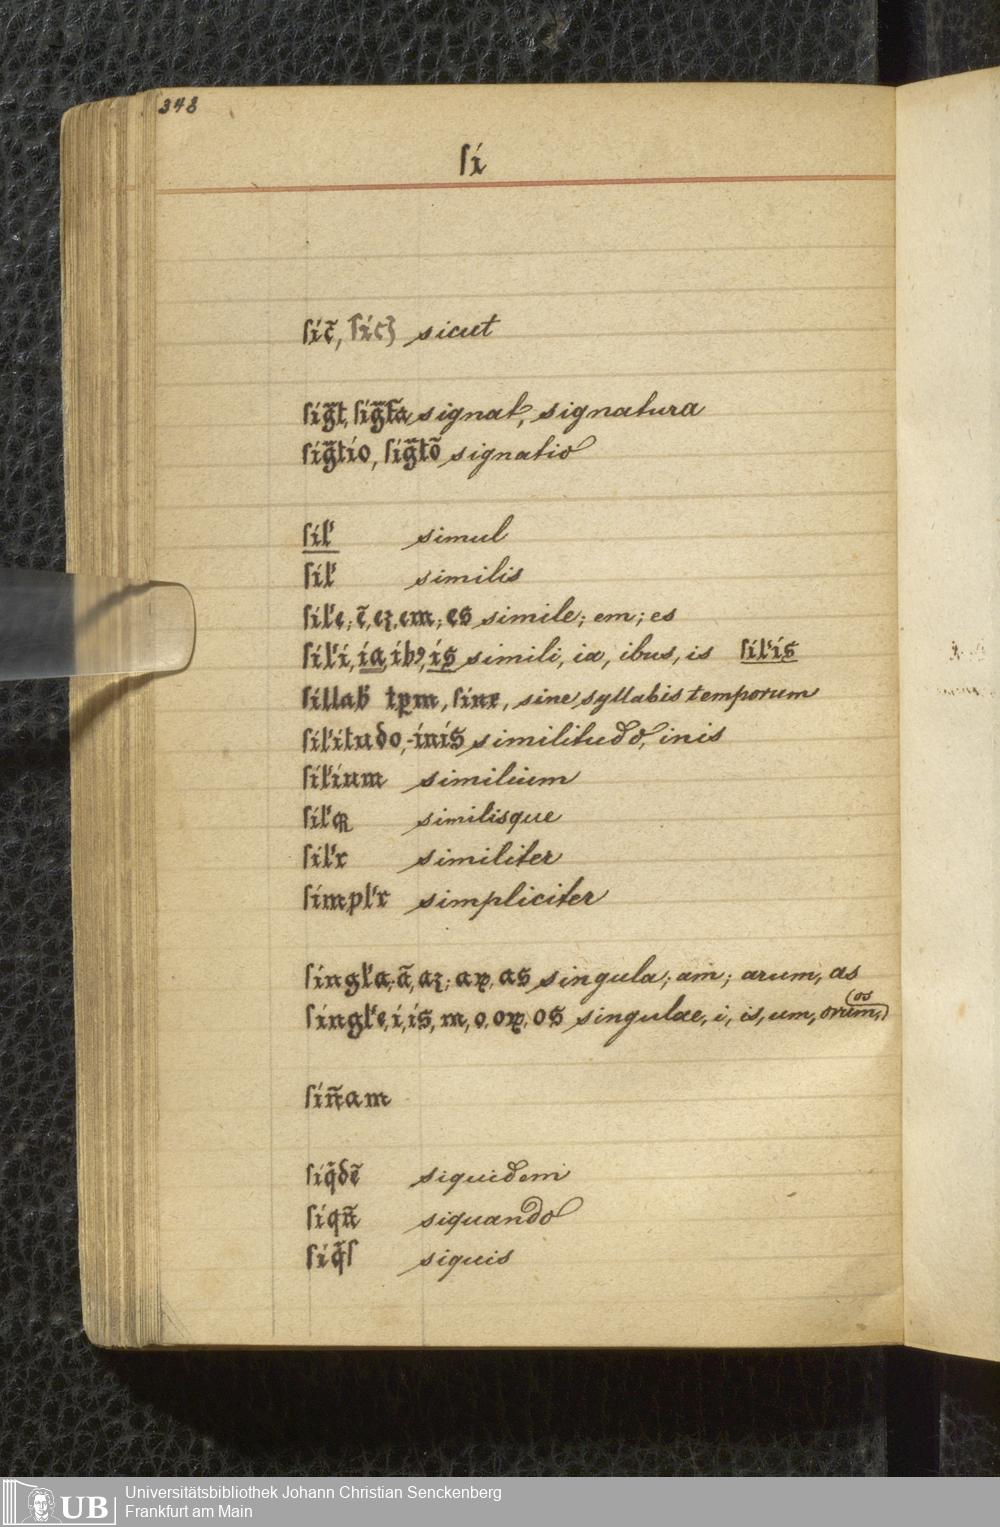 348
ſi
ſic̄, ſicʒ sicut
ſig̃t, ſig̃ta signat, signatura
ſig̃tio, ſig̃tō signatio
ſil' simul
ſil' similis
ſil'e; ē, eʒ, em; es simile; em; es
ſil'i, ia, ibꝰ, is simili, ia, ibus, is ſil'is
ſillab̄ tp̄m, ſine, sine syllabis temporum
ſil'itudo, -inis similitudo, inis
ſil'ium similium
ſil'qꝫ similisque
ſil'r similiter
ſimpl'r simpliciter
ſingl'a; ā, aʒ; aꝝ, as singula; am; arum, as
ſingl'e, i, is, m, o, oꝝ, os singulae, i, is, um, orum, os
ſiñam
ſiq̄dē siquidem
ſiqñ siquando
ſiq̄ſ siquis
UB
Universitätsbibliothek Johann Christian Senckenberg
Frankfurt am Main